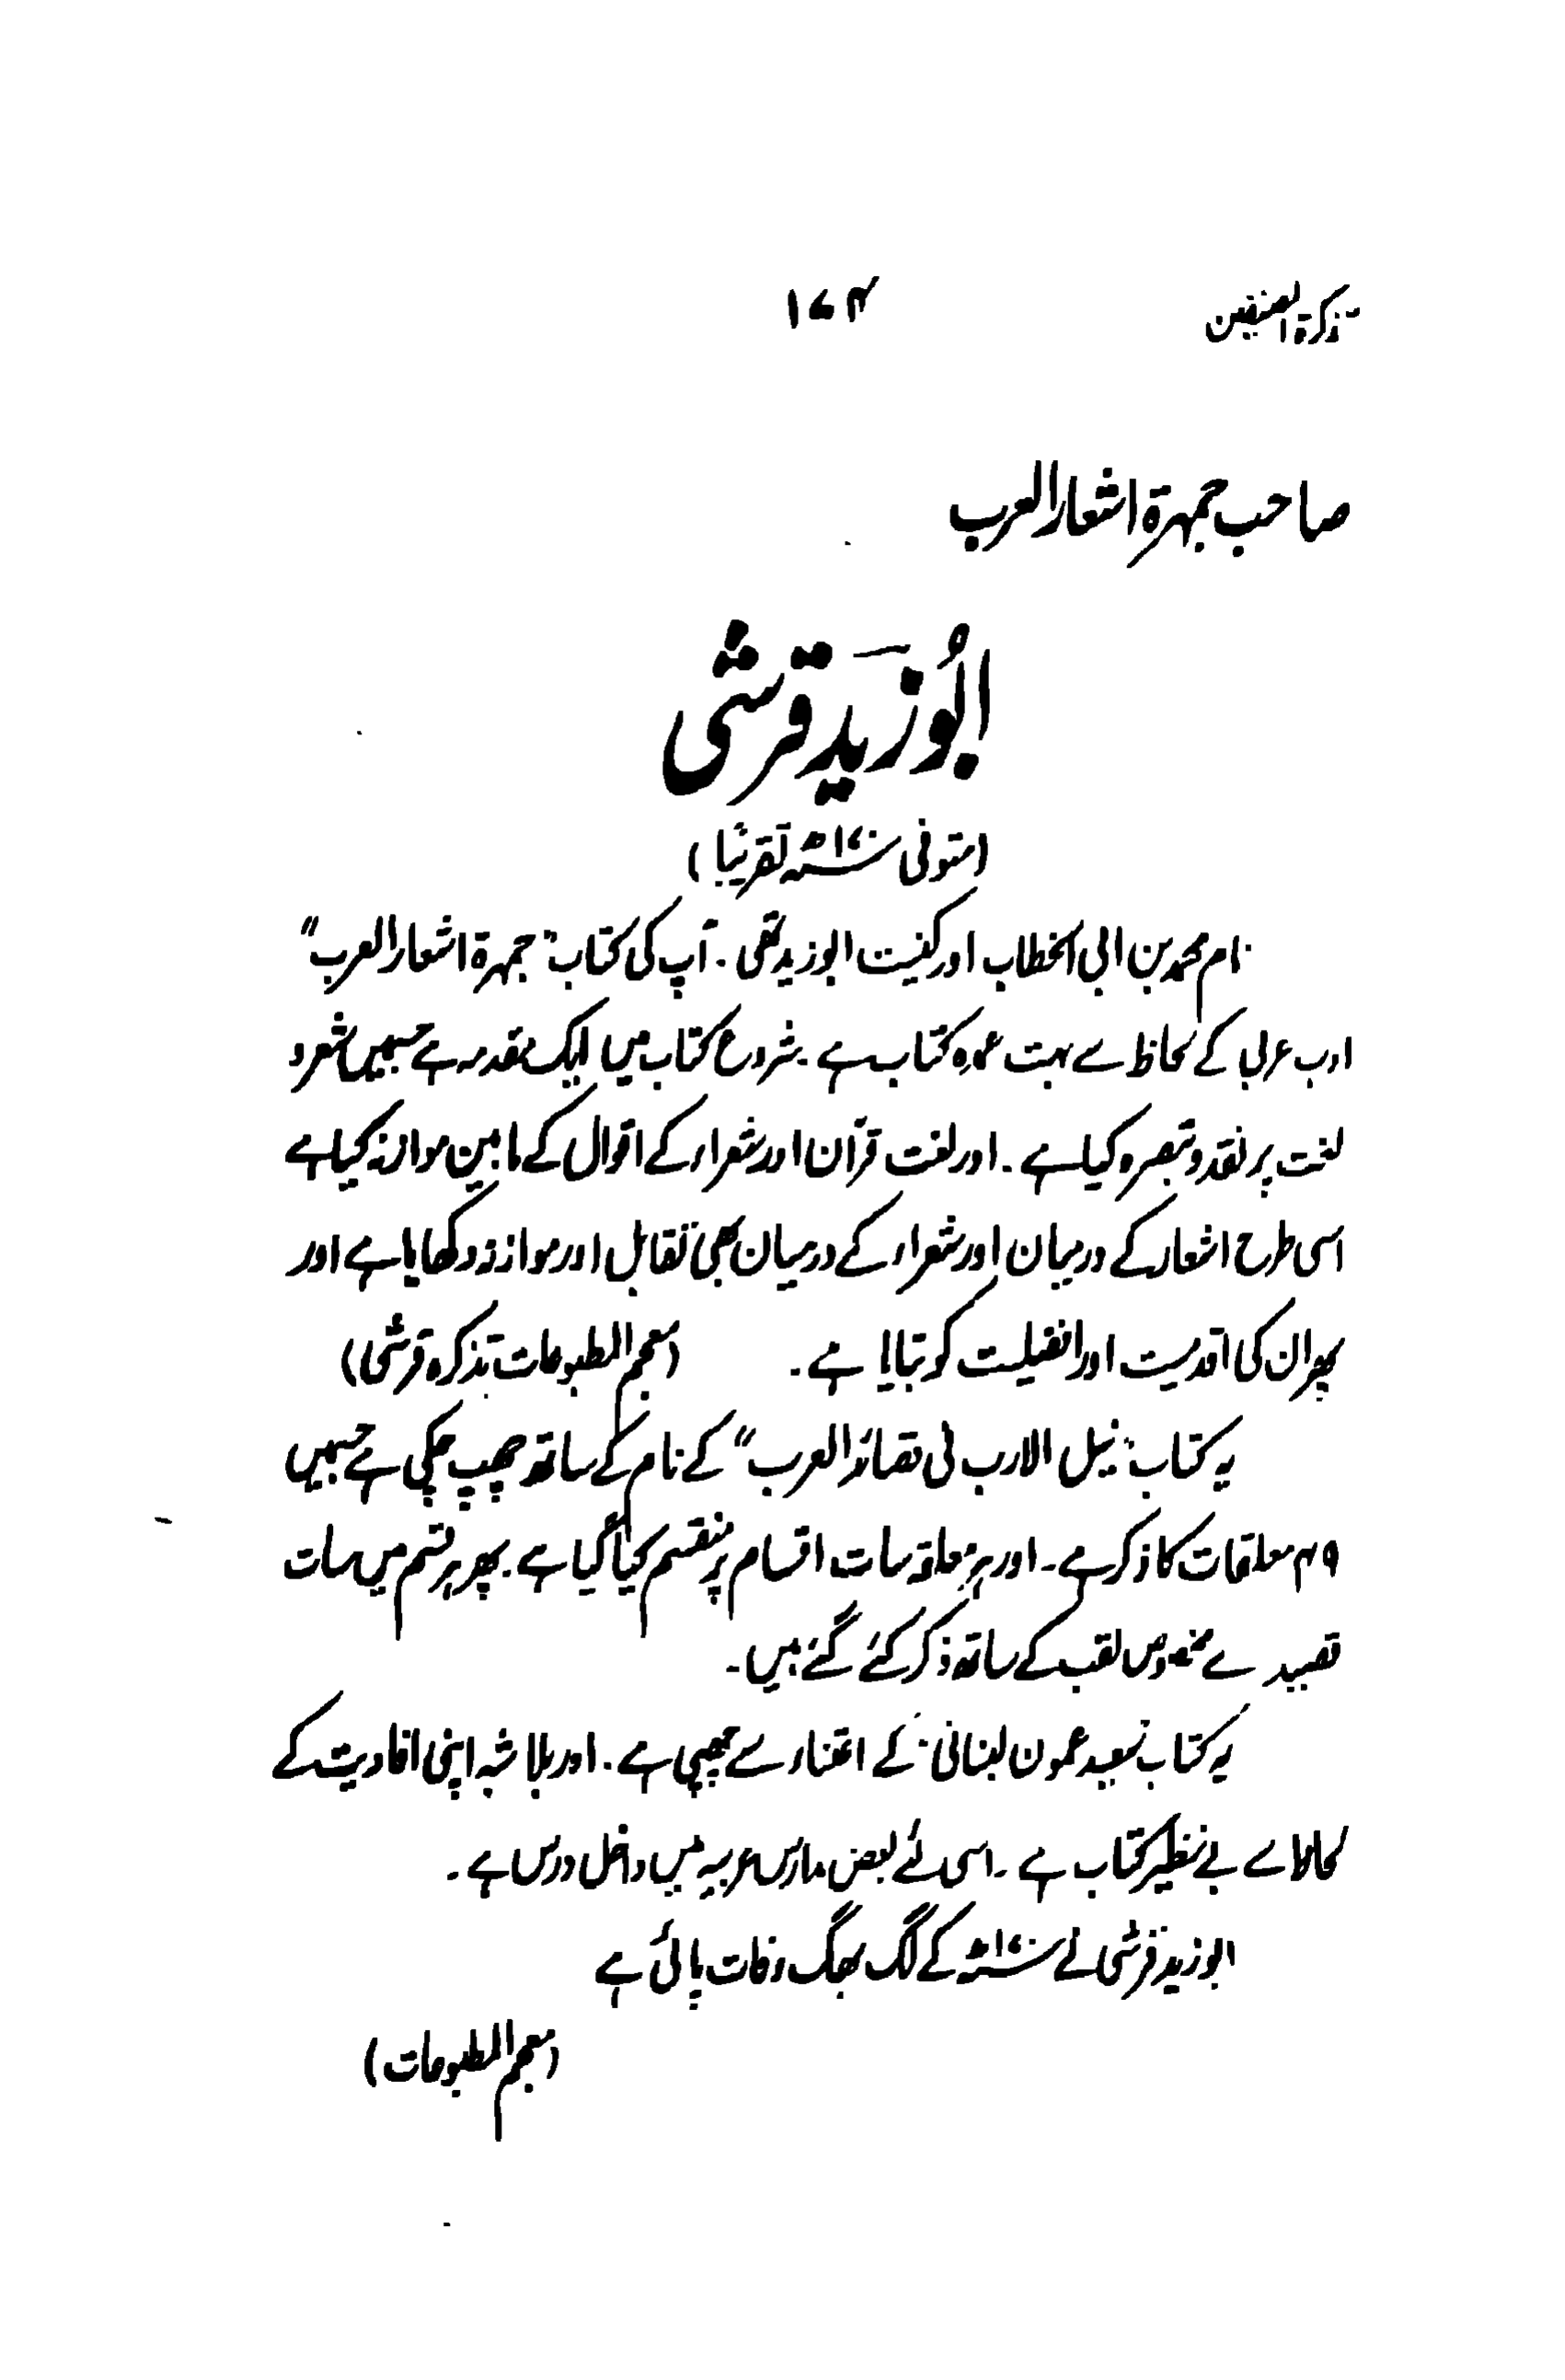 تذکرۃ المصنفین ۱۷۴
صاحب جمہرۃ اشعار العرب
ابُو زَید قرشی
(متوفی ۱۷۰ھ تقریبًا)
نام محمد بن ابی الخطاب اور کنیت ابو زید تھی۔ آپ کی کتاب "جمہرۃ اشعار العرب"
ادب عربی کے لحاظ سے بہت عمدہ کتاب ہے۔ شروع کتاب میں ایک مقدمہ ہے جسمیں شعر و
لغت پر نقد و تبصرہ کیا ہے۔ اور لغت قرآن اور شعراء کے اقوال کے مابین موازنہ کیا ہے
اسی طرح اشعار کے درمیان اور شعراء کے درمیان بھی تقابل اور موازنہ دکھایا ہے اور
پھر ان کی اقدمیت اور افضیلت کو بتایا ہے۔ (معجم المطبوعات تذکرہ قرشی)
یہ کتاب "نیل الارب فی قصائد العرب" کے نام کے ساتھ چھپ چکی ہے جسمیں
۴۹ معلقات کا ذکر ہے۔ اور ہر معلقہ سات اقسام پر منقسم کیا گیا ہے۔ پھر ہر قسم میں سات
قصیدے مخصوص لقب کے ساتھ ذکر کئے گئے ہیں۔
یہ کتاب سعید عمون لبنانی کے اعتناء سے چھپی ہے۔ اور بلا شبہ اپنی افادیت کے
لحاظ سے بے نظیر کتاب ہے۔ اسی لئے بعض مدارس عربیہ میں داخل درس ہے۔
ابو زید قرشی نے ۱۷۰ھ کے لگ بھگ وفات پائی ہے
(معجم المطبوعات)